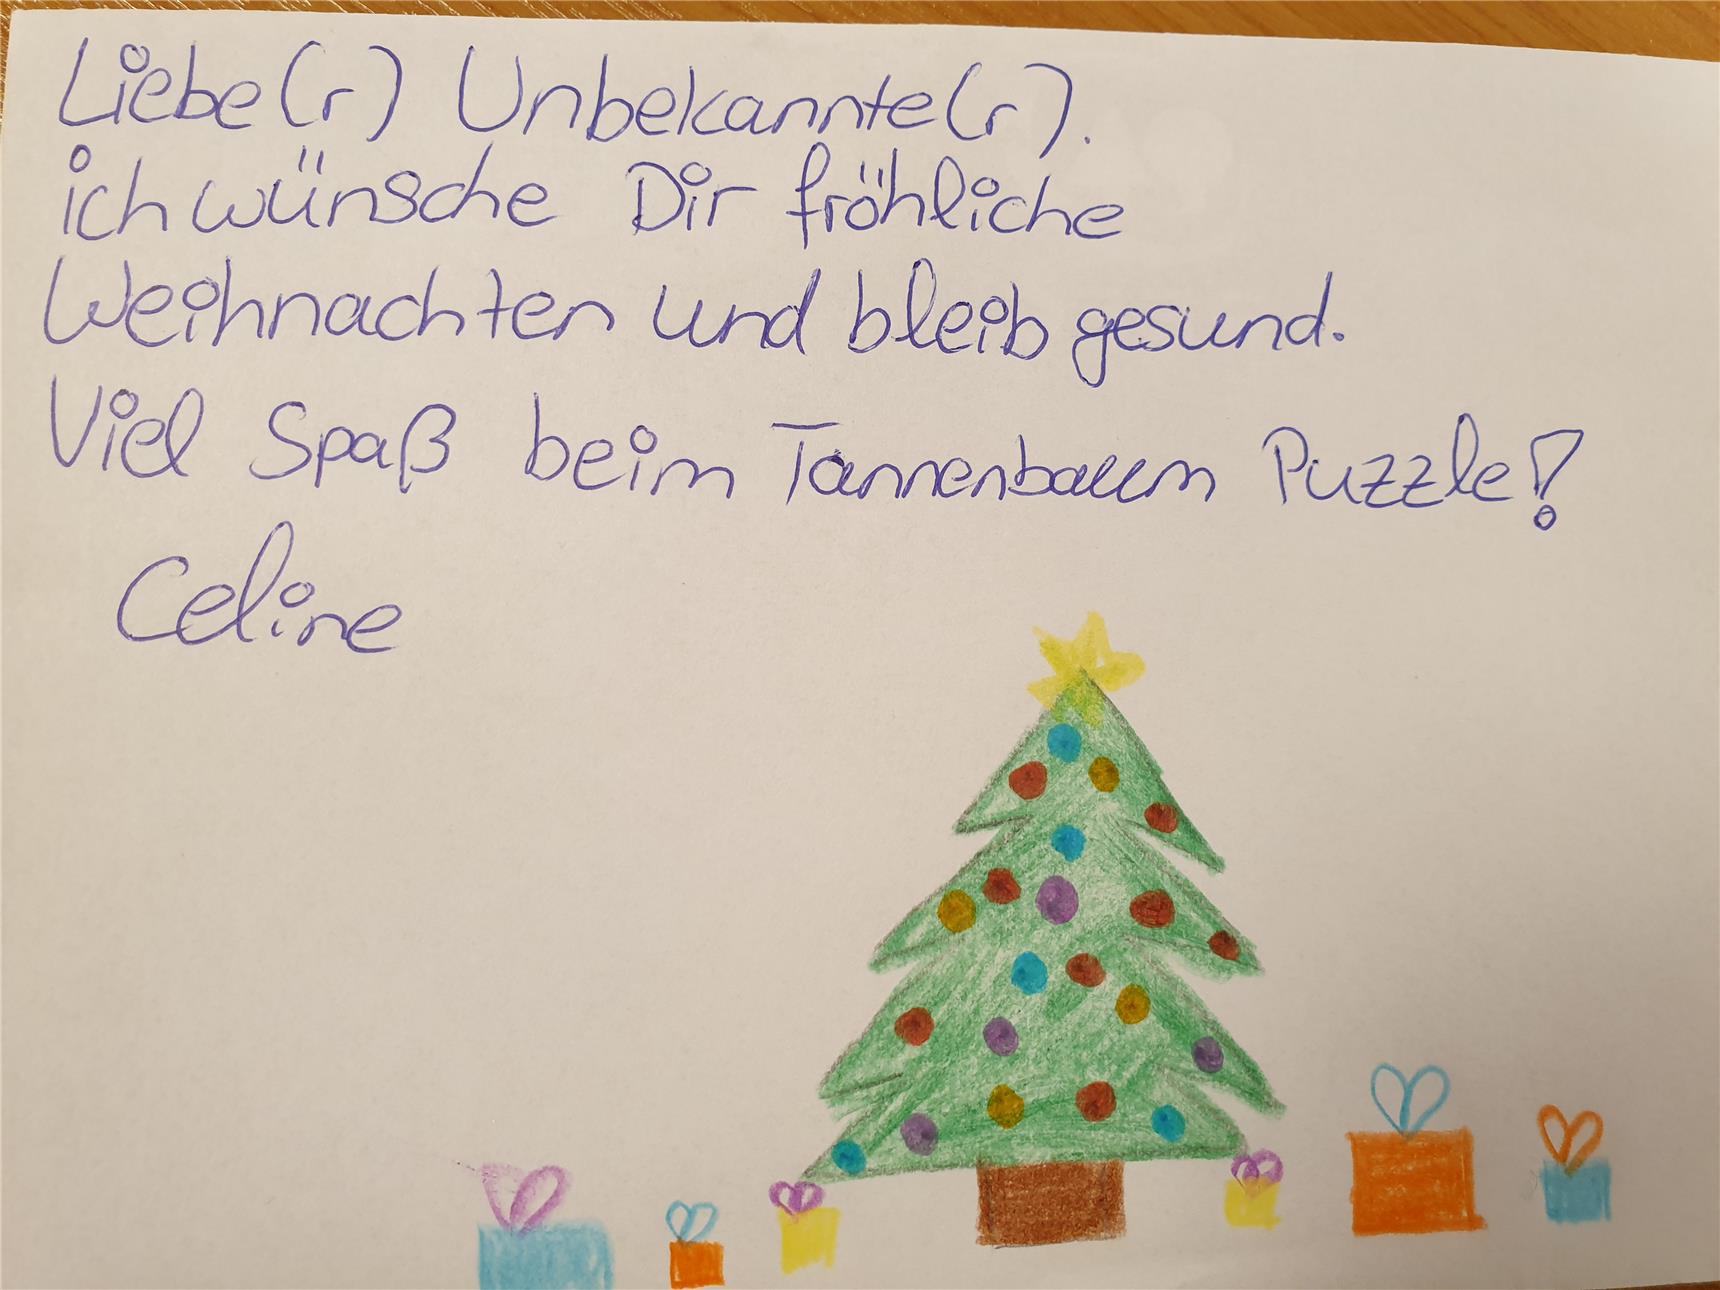 Liebe(r) Unbekannte(r).
ich wünsche Dir fröhliche
Weihnachten und bleib gesund.
Viel Spaß beim Tannenbaum Puzzle!
Celine